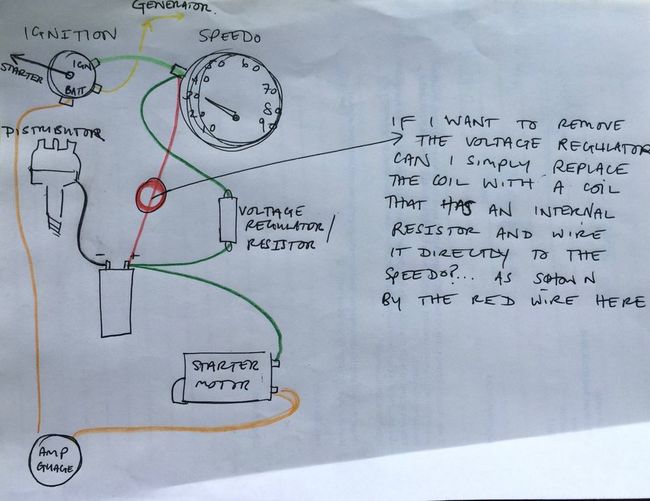 GENERATOR.
IGNITION
SPEEDO
STARTER
IGN
BATT
10
20
30
40
50
60
70
80
90
DISTRIBUTOR
IF I WANT TO REMOVE
THE VOLTAGE REGULATOR
CAN I SIMPLY REPLACE
THE COIL WITH A COIL
THAT HAS AN INTERNAL
RESISTOR AND WIRE
IT DIRECTLY TO THE
SPEEDO?... AS SHOWN
BY THE RED WIRE HERE
VOLTAGE
REGULATOR/
RESISTOR
- +
STARTER
MOTOR
AMP
GUAGE